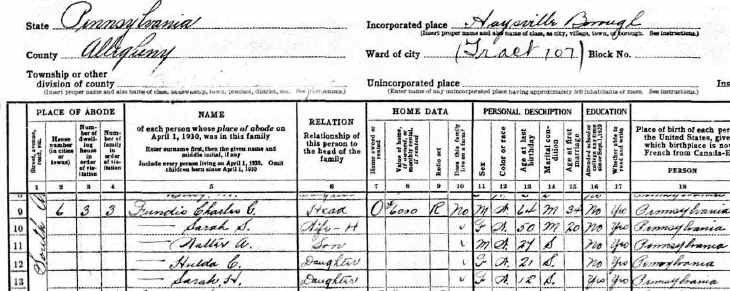 State Pennsylvania
Incorporated place Haysville Borough
(Insert proper name and also name of class, as city, village, town, or borough. See instructions.)
County Allegheny
Ward of city (Tract 107) Block No.
Township or other
division of county
(Insert proper name and also name of class, as township, town, precinct, district, etc. See instructions.)
Unincorporated place
(Enter name of any unincorporated place having approximately 500 inhabitants or more. See instructions.)
PLACE OF ABODE NAME RELATION HOME DATA PERSONAL DESCRIPTION EDUCATION
of each person whose place of abode on
April 1, 1930, was in this family
Enter surname first, then the given name and
middle initial, if any
Include every person living on April 1, 1930. Omit
children born since April 1, 1930
Relationship of
this person to the
head of the
family
Street, avenue, road, etc.
House number (in cities or towns)
Number of dwelling house in order of visitation
Number of family in order of visitation
Home owned or rented
Radio set
Does this family live on a farm?
Sex
Color or race
Age at last birthday
Marital condition
Age at first marriage
Whether able to read and write
Place of birth of each per
the United States, give
which birthplace is no
French from Canada-E
1 2 3 4 5 6 7 8 9 10 11 12 13 14 15 16 17 18
South
9 6 3 3 Charles C. Head O 6000 R No M 64 M 34 No Yes Pennsylvania
10 — Sarah S. Wife-H F 50 M 20 No Yes Pennsylvania
11 — Walter A. Son M 27 S No Yes Pennsylvania
12 — Hulda C. Daughter F 21 S No Yes Pennsylvania
13 — Sarah H. Daughter F 12 S Yes Yes Pennsylvania